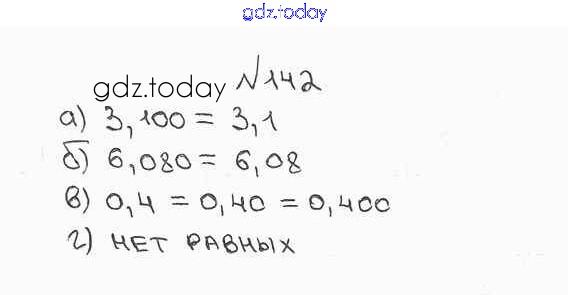 gdz.today
gdz.today №142
а) 3,100 = 3,1
б) 6,080 = 6,08
в) 0,4 = 0,40 = 0,400
г) НЕТ РАВНЫХ